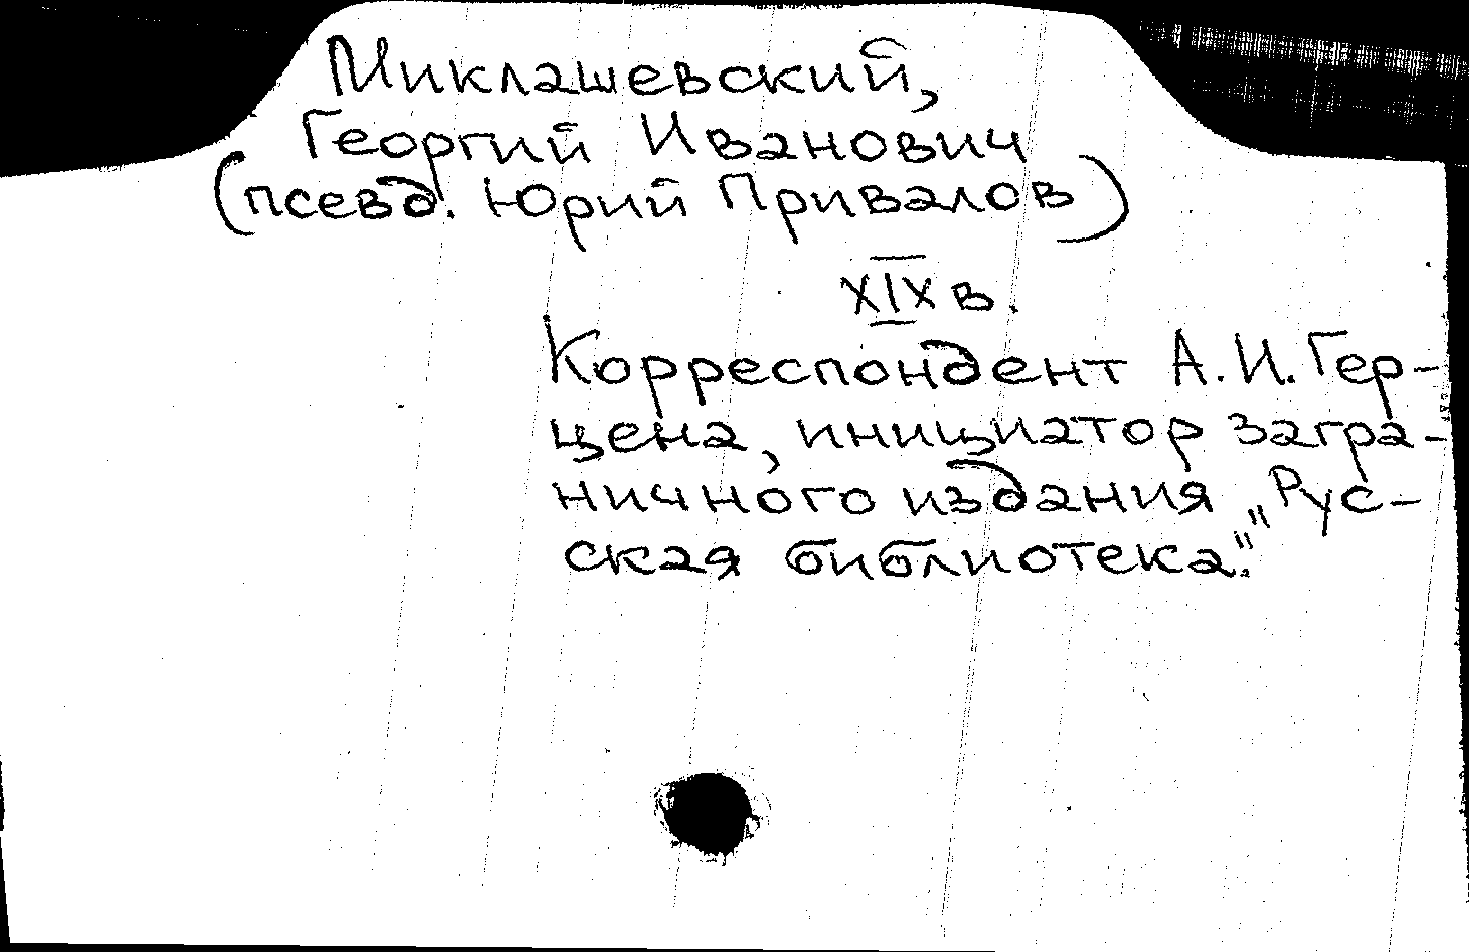 Миклашевский,
Георгий Иванович
(псевд. Юрий Привалов)
XIX в.
Корреспондент А.И. Гер-
цена, инициатор загра-
ничного издания „Рус-
ская библиотека".